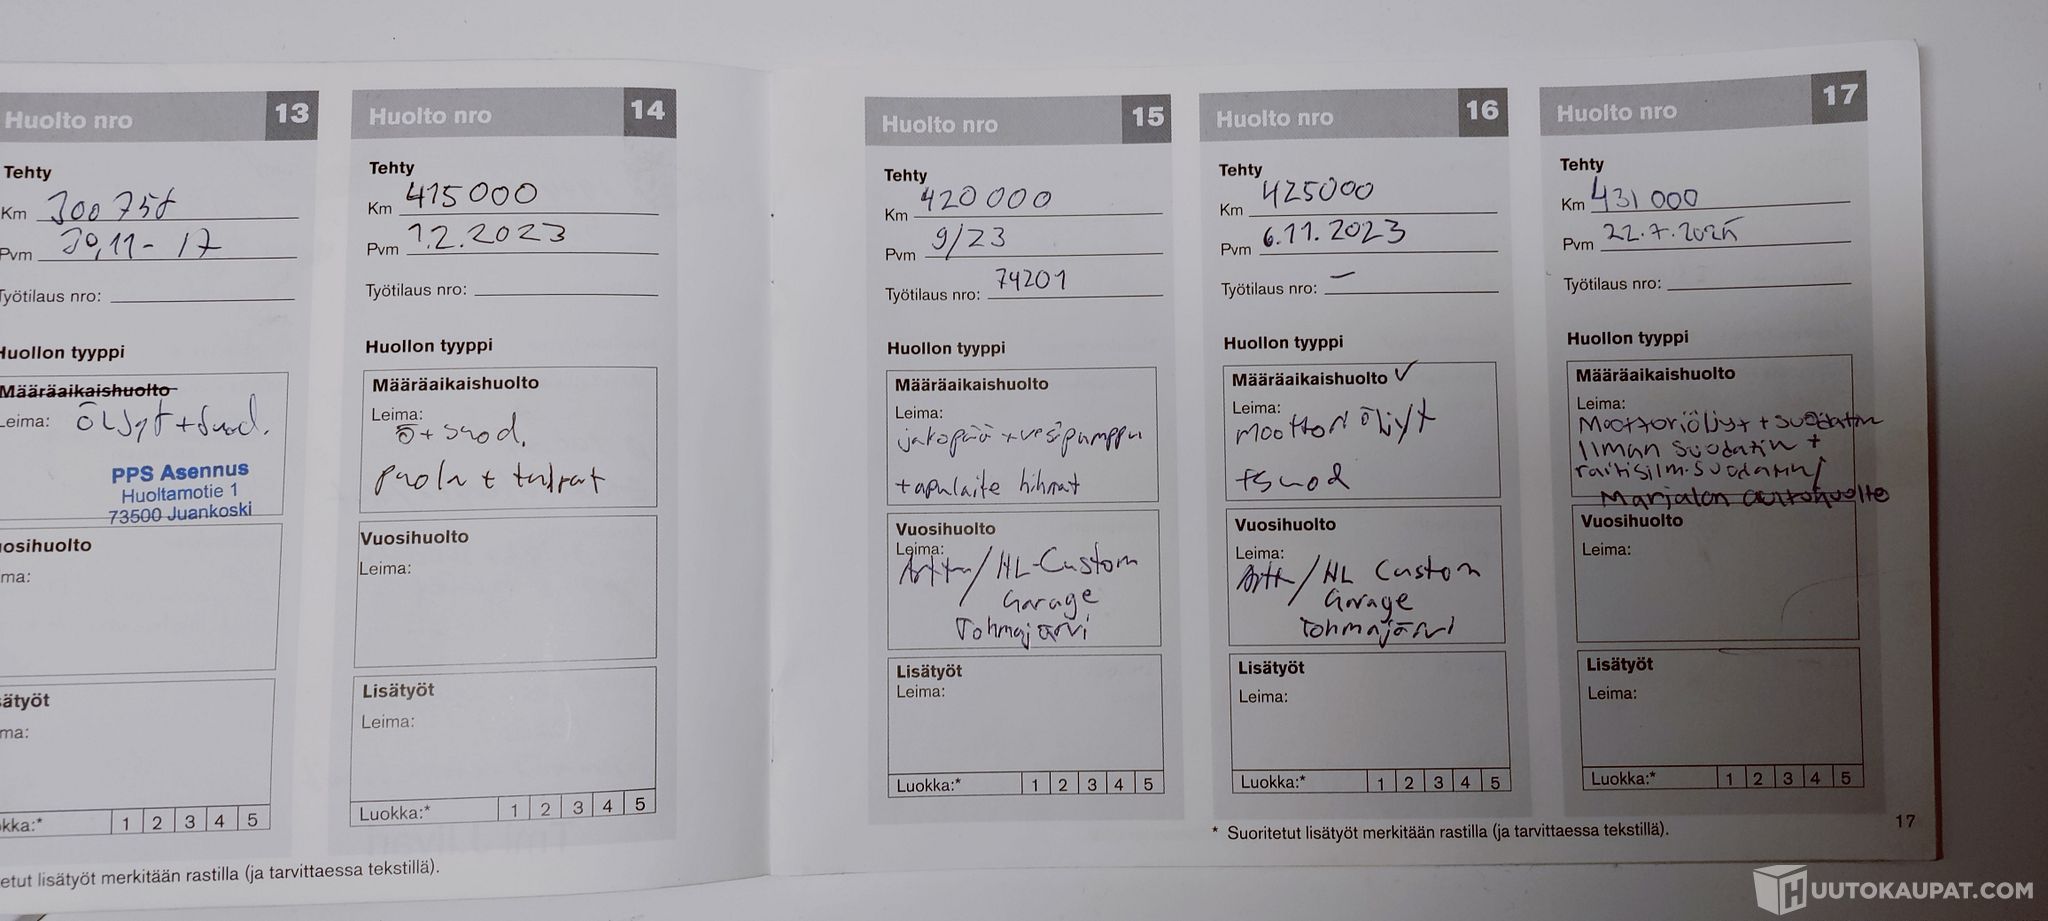 Huolto nro 13
Tehty
Km 300 758
Pvm 30,11- 17
Työtilaus nro:
Huollon tyyppi
Määräaikaishuolto
Leima: öljyt + suod.
PPS Asennus
Huoltamotie 1
73500 Juankoski
uosihuolto
ma:
sätyöt
ma:
kka:* 1 2 3 4 5
etut lisätyöt merkitään rastilla (ja tarvittaessa tekstillä).
Huolto nro 14
Tehty
Km 415000
Pvm 1.2.2023
Työtilaus nro:
Huollon tyyppi
Määräaikaishuolto
Leima:
ö + suod.
puola + tulpat
Vuosihuolto
Leima:
Lisätyöt
Leima:
Luokka:* 1 2 3 4 5
Huolto nro 15
Tehty
Km 420 000
Pvm 9/23
Työtilaus nro: 74201
Huollon tyyppi
Määräaikaishuolto
Leima:
jakopää + vesipumppu
+ apulaite hihnat
Vuosihuolto
Leima:
/HL-Custom
Garage
Tohmajärvi
Lisätyöt
Leima:
Luokka:* 1 2 3 4 5
Huolto nro 16
Tehty
Km 425000
Pvm 6.11.2023
Työtilaus nro: –
Huollon tyyppi
Määräaikaishuolto ✓
Leima:
moottori öljyt
+suod
Vuosihuolto
Leima:
/HL Custom
Garage
Tohmajärvi
Lisätyöt
Leima:
Luokka:* 1 2 3 4 5
Huolto nro 17
Tehty
Km 431 000
Pvm 22.7.2025
Työtilaus nro:
Huollon tyyppi
Määräaikaishuolto
Leima:
Moottoriöljyt + suodatin
Ilman suodatin +
raitisilm.suodatin/
Marjalan autohuolto
Vuosihuolto
Leima:
Lisätyöt
Leima:
Luokka:* 1 2 3 4 5
* Suoritetut lisätyöt merkitään rastilla (ja tarvittaessa tekstillä).
17
HUUTOKAUPAT.COM